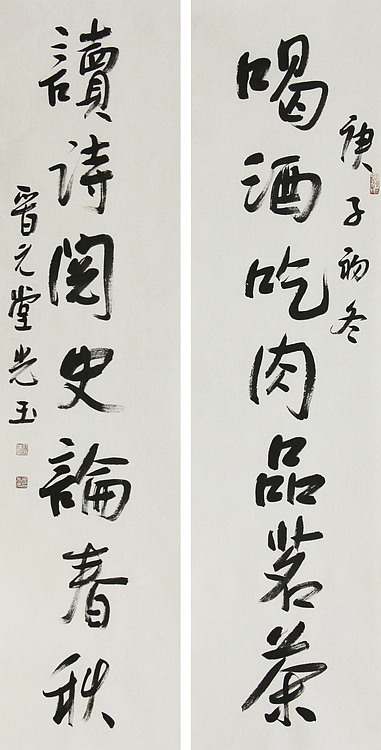 庚子初冬
喝酒吃肉品茗茶
讀诗阅史論春秋
晋元堂光玉